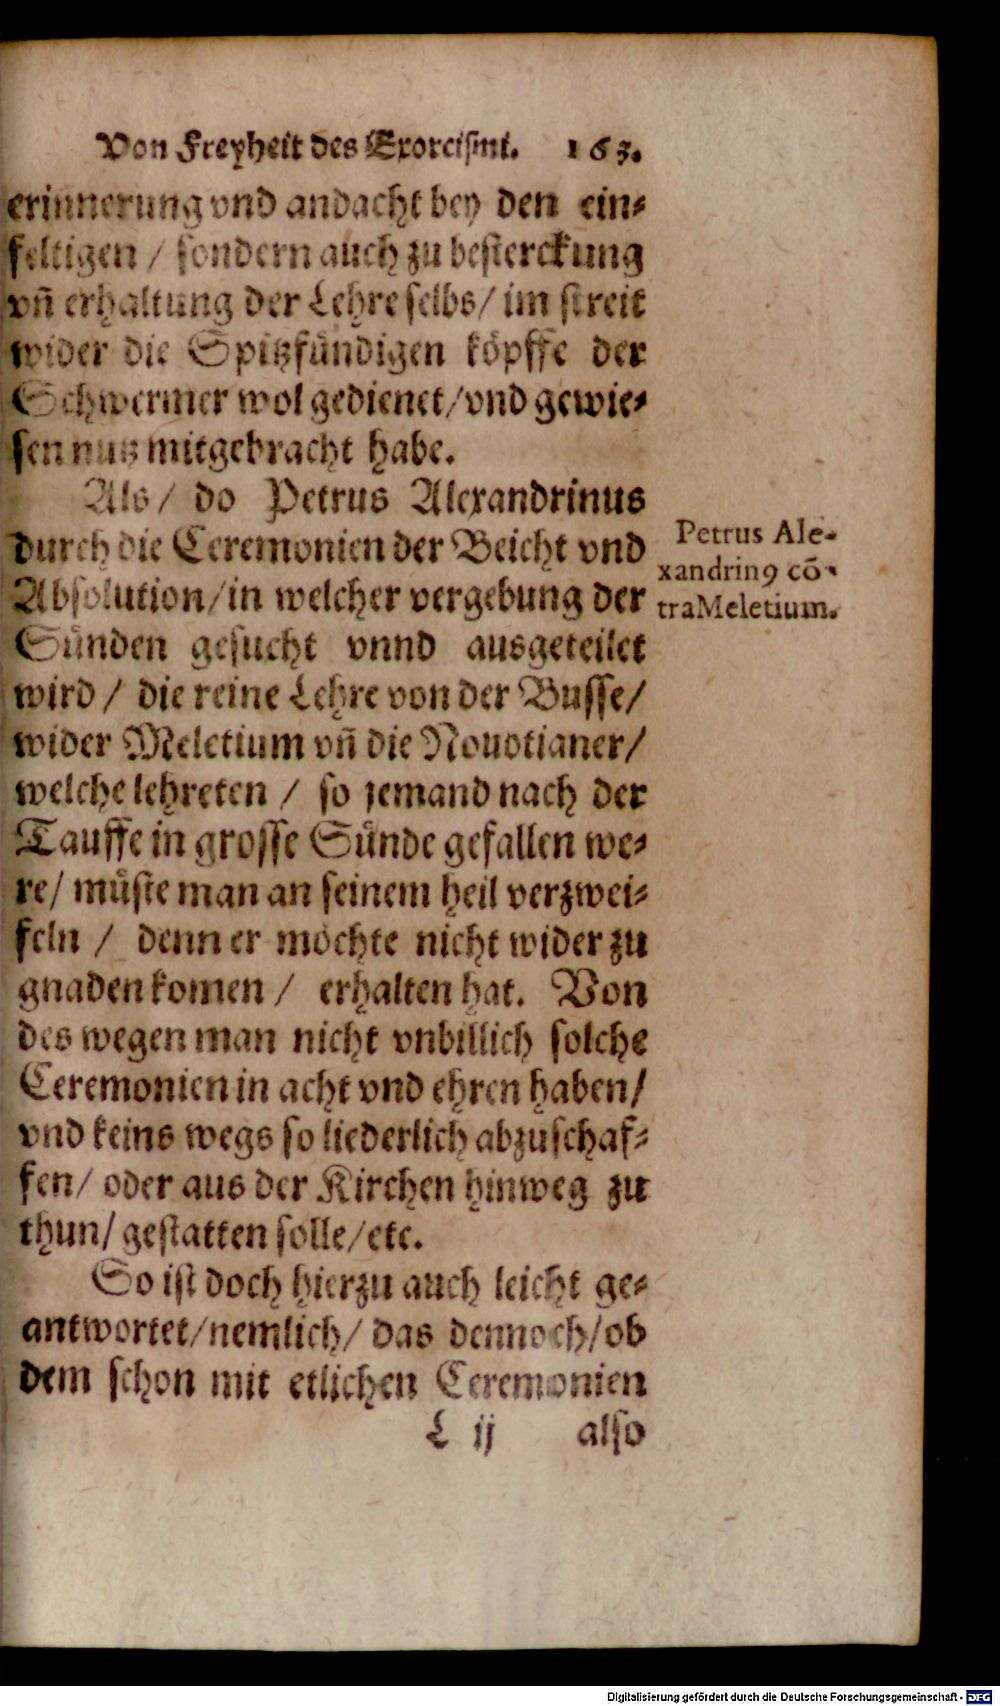 Von Freyheit des Exorcismi. 163.
erinnerung vnd andacht bey den ein⸗
feltigen / sondern auch zu besterckung
vñ erhaltung der Lehre selbs / im streit
wider die Spitzfündigen köpffe der
Schwermer wol gedienet / vnd gewie⸗
sen nutz mitgebracht habe.
Als / do Petrus Alexandrinus
durch die Ceremonien der Beicht vnd
Absolution / in welcher vergebung der
Sünden gesucht vnnd ausgeteilet
wird / die reine Lehre von der Busse /
wider Meletium vñ die Nouotianer /
welche lehreten / so jemand nach der
Tauffe in grosse Sünde gefallen we⸗
re / müste man an seinem heil verzwei⸗
feln / denn er möchte nicht wider zu
gnaden komen / erhalten hat. Von
des wegen man nicht vnbillich solche
Ceremonien in acht vnd ehren haben /
vnd keins wegs so liederlich abzuschaf⸗
fen / oder aus der Kirchen hinweg zu
thun / gestatten solle / etc.
So ist doch hierzu auch leicht ge⸗
antwortet / nemlich / das dennoch / ob
dem schon mit etlichen Ceremonien
L ij also
Petrus Ale-
xandrin9 cō-
tra Meletium.
Digitalisierung gefördert durch die Deutsche Forschungsgemeinschaft - DFG